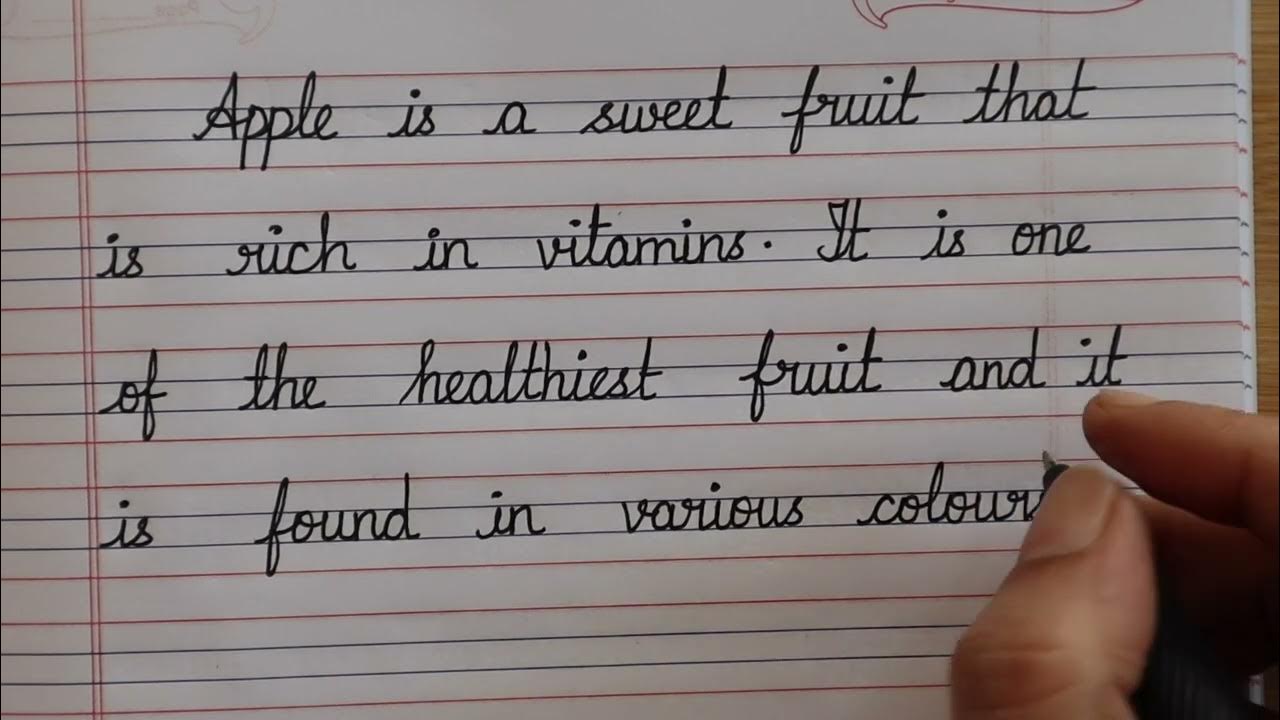 Apple is a sweet fruit that
is rich in vitamins. It is one
of the healthiest fruit and it
is found in various colour